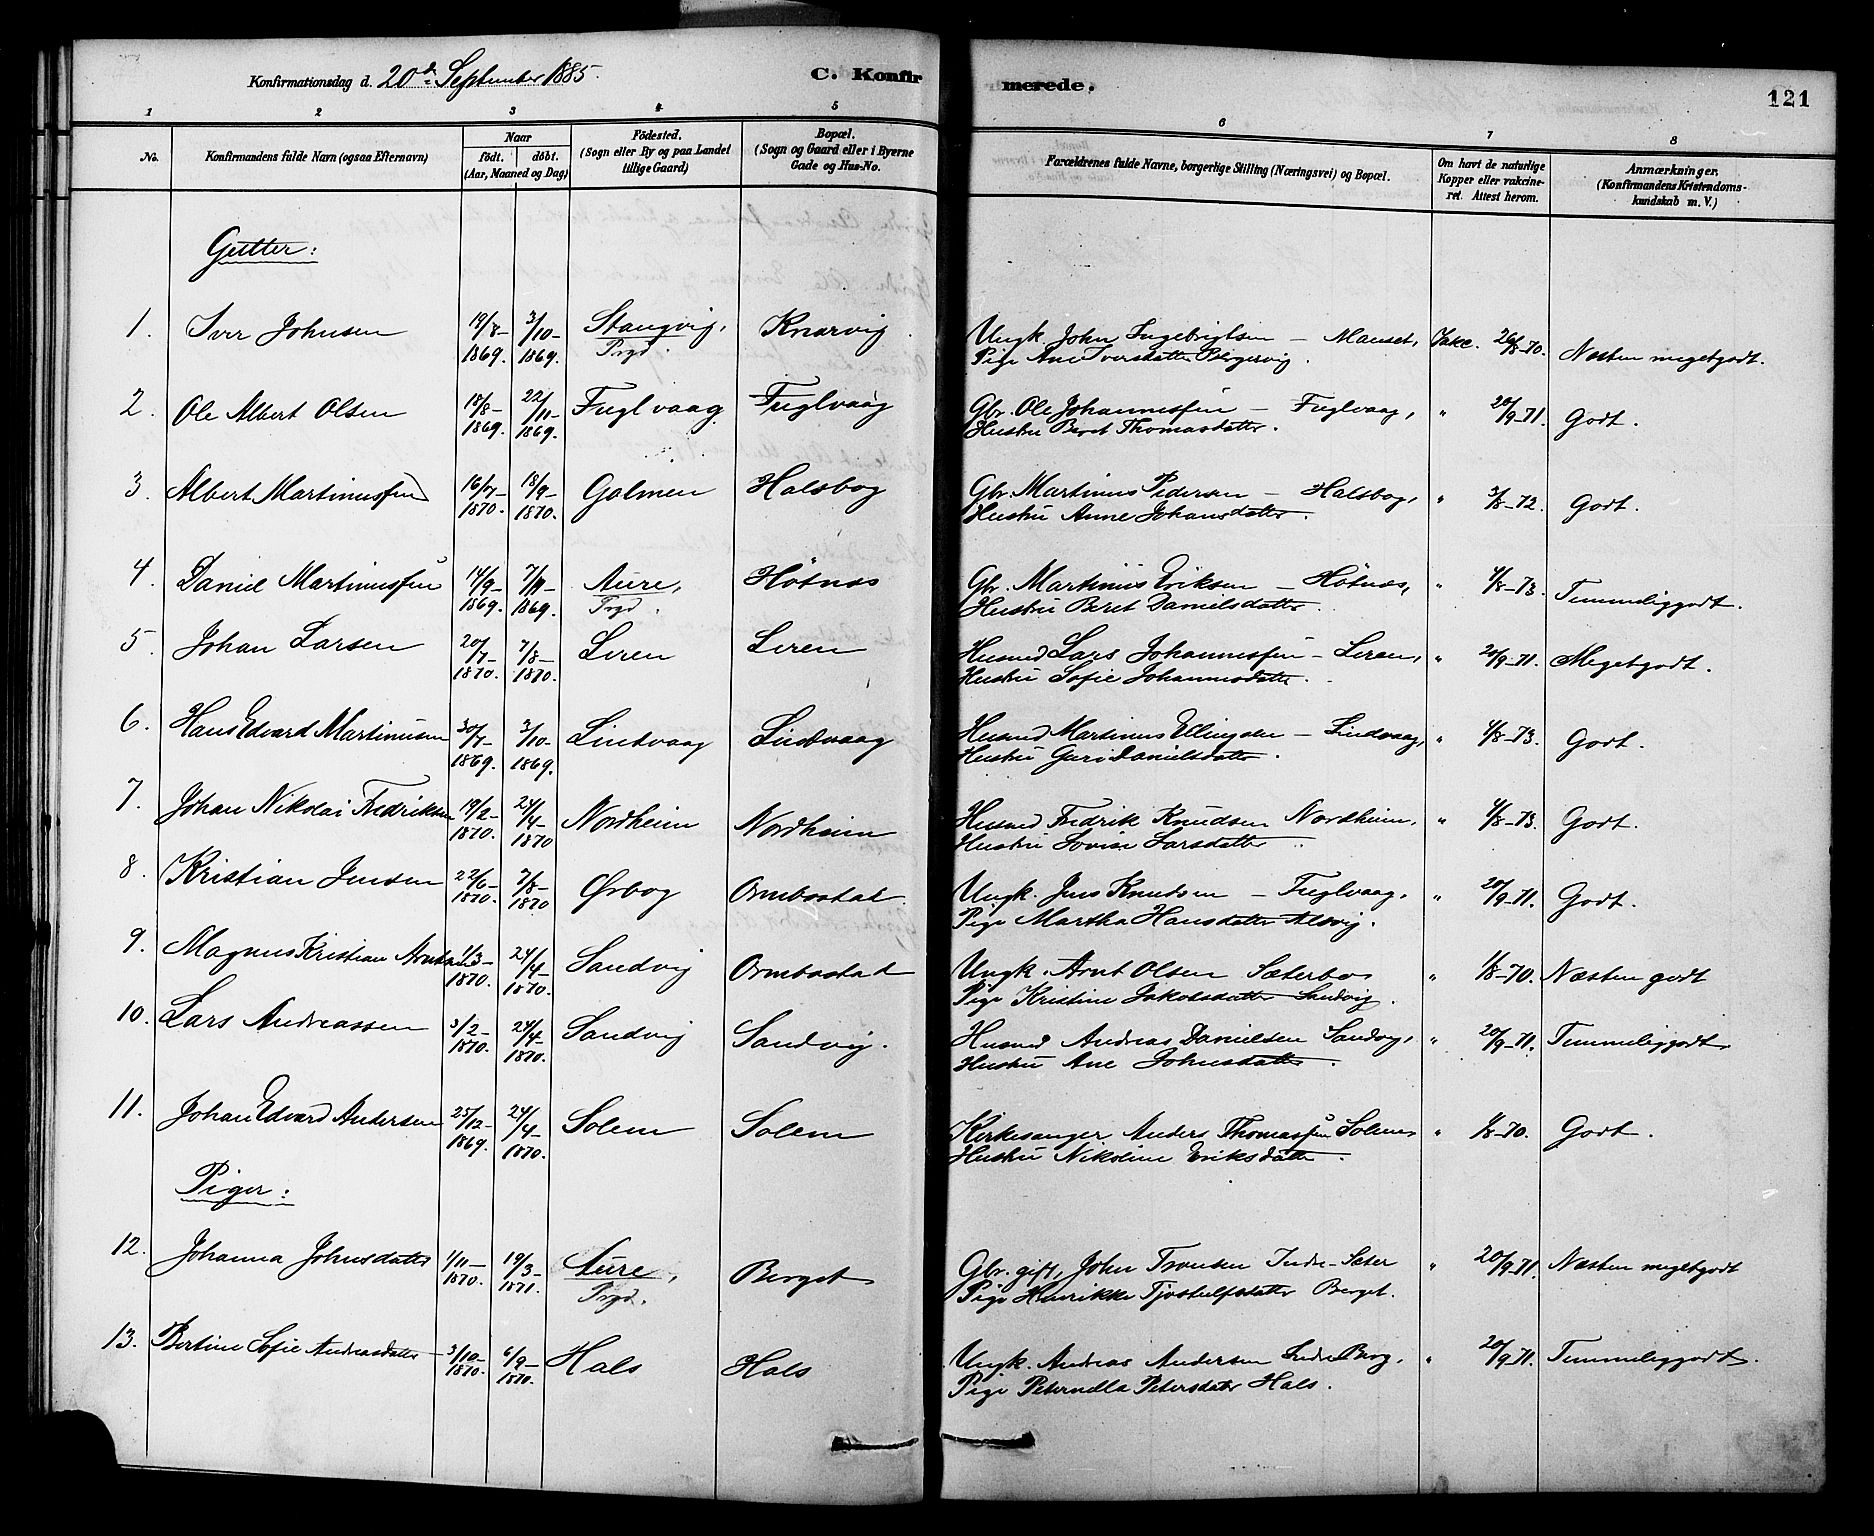 Konfirmationsdag d. 20de September 1885.
C. Konfirmerede.
121
1 2 3 4 5 6 7 8
No.
Konfirmandens fulde Navn (ogsaa Efternavn)
Naar
født. døbt.
(Aar, Maaned og Dag)
Födested.
(Sogn eller By og paa Landet
tillige Gaard)
Bopæl.
(Sogn og Gaard eller i Byerne
Gade og Hus-No.
Forældrenes fulde Navne, borgerlige Stilling (Næringsvei) og Bopæl.
Om havt de naturlige
Kopper eller vakcineret.
Attest herom.
Anmærkninger.
(Konfirmandens Kristendomskundskab
m. V.)
Gutter:
1. Iver Johnsen 19/8-1869. 3/10-1869. Stangvig, Prgd. Knarvig
Ungk. John Ingebrigtsen – Mauset, Vakc. 26/8-70. Næsten megetgodt.
Pige Ane Iversdatter
2. Ole Albert Olsen 18/8-1869. 22/11-1869. Fuglvaag Fuglvaag
Gbr. Ole Johannessen – Fuglvaag, " 20/9-71. Godt.
Hustru Beret Thomasdatter.
3. Albert Martinussen 16/7-1870. 18/9-1870. Galmen Halsbog
Gbr. Martinus Pedersen – Halsbog, " 3/8-72. Godt.
Hustru Anne Johansdatter.
4. Daniel Martinussen 14/9-1869. 7/11-1869. Aure, Prgd. Hötnæs
Gbr. Martinus Eriksen – Hötnæs, " 4/8-73. Temmeliggodt.
Hustru Beret Danielsdatter.
5. Johan Larsen 20/7-1870. 7/8-1870. Leren Leren
Husmd Lars Johannessen – Leren, " 20/9-71. Megetgodt.
Hustru Sofie Johannesdatter.
6. Hans Edvard Martinusen 30/7-1869. 3/10-1869. Lindvaag Lindvaag
Husmd Martinus Ellingsen – Lindvaag, " 4/8-73. Godt.
Hustru Guri Danielsdatter.
7. Johan Nikolai Fredriksen 19/2-1870. 24/4-1870 Nordheim Nordheim
Husmd Fredrik Knudsen Nordheim, " 4/8-73. Godt.
Hustru Lovise Larsdatter.
8. Kristian Jensen 22/6-1870. 7/8-1870 Ørbog Ormbostad
Ungk. Jens Knudsen – Fuglvaag, " 20/9-71. Godt.
Pige Martha Hansdatter
9. Magnus Kristian Arntsen 1/3-1870. 24/4-1870. Sandvig Ormbostad
Ungk. Arnt Olsen Sæterbø " 1/8-70. Næsten godt
Pige Kristine Jakobsdatter Sandvig.
10. Lars Andreassen 3/2-1870. 24/4-1870. Sandvig Sandvig.
Husmd Andreas Danielsen Sandvig, " 20/9-71. Temmeliggodt.
Hustru Ane Johnsdatter.
11. Johan Edvard Andersen 25/12-1869. 24/4-1870. Solem Solem
Kirkesanger Anders Thomassen Solem " 1/8-70. Godt.
Hustru Nikoline Eriksdatter.
Piger:
12. Johanna Johnsdatter 1/11-1870. 19/3-1871. Aure, Prgd. Berget
Gbr. gift, John Tronsen Indre-Sæter " 20/9-71. Næsten megetgodt
Pige Henrikke Tjostulfsdatter Berget.
13. Bertine Sofie Andreasdatter 3/10-1870. 6/9-1870. Hals Hals
Ungk. Andreas Andersen Indre Berg, " 20/9-71. Temmeliggodt.
Pige Peternella Petersdatter Hals.